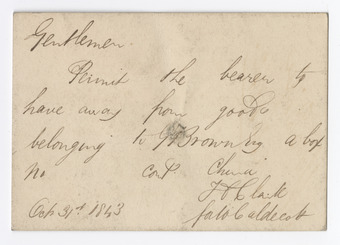 Gentlemen.
Permit the bearer to
have away from goods
belonging to Brown Esq a box
No cont China
Clark
Oct 31st 1843 Caldecott